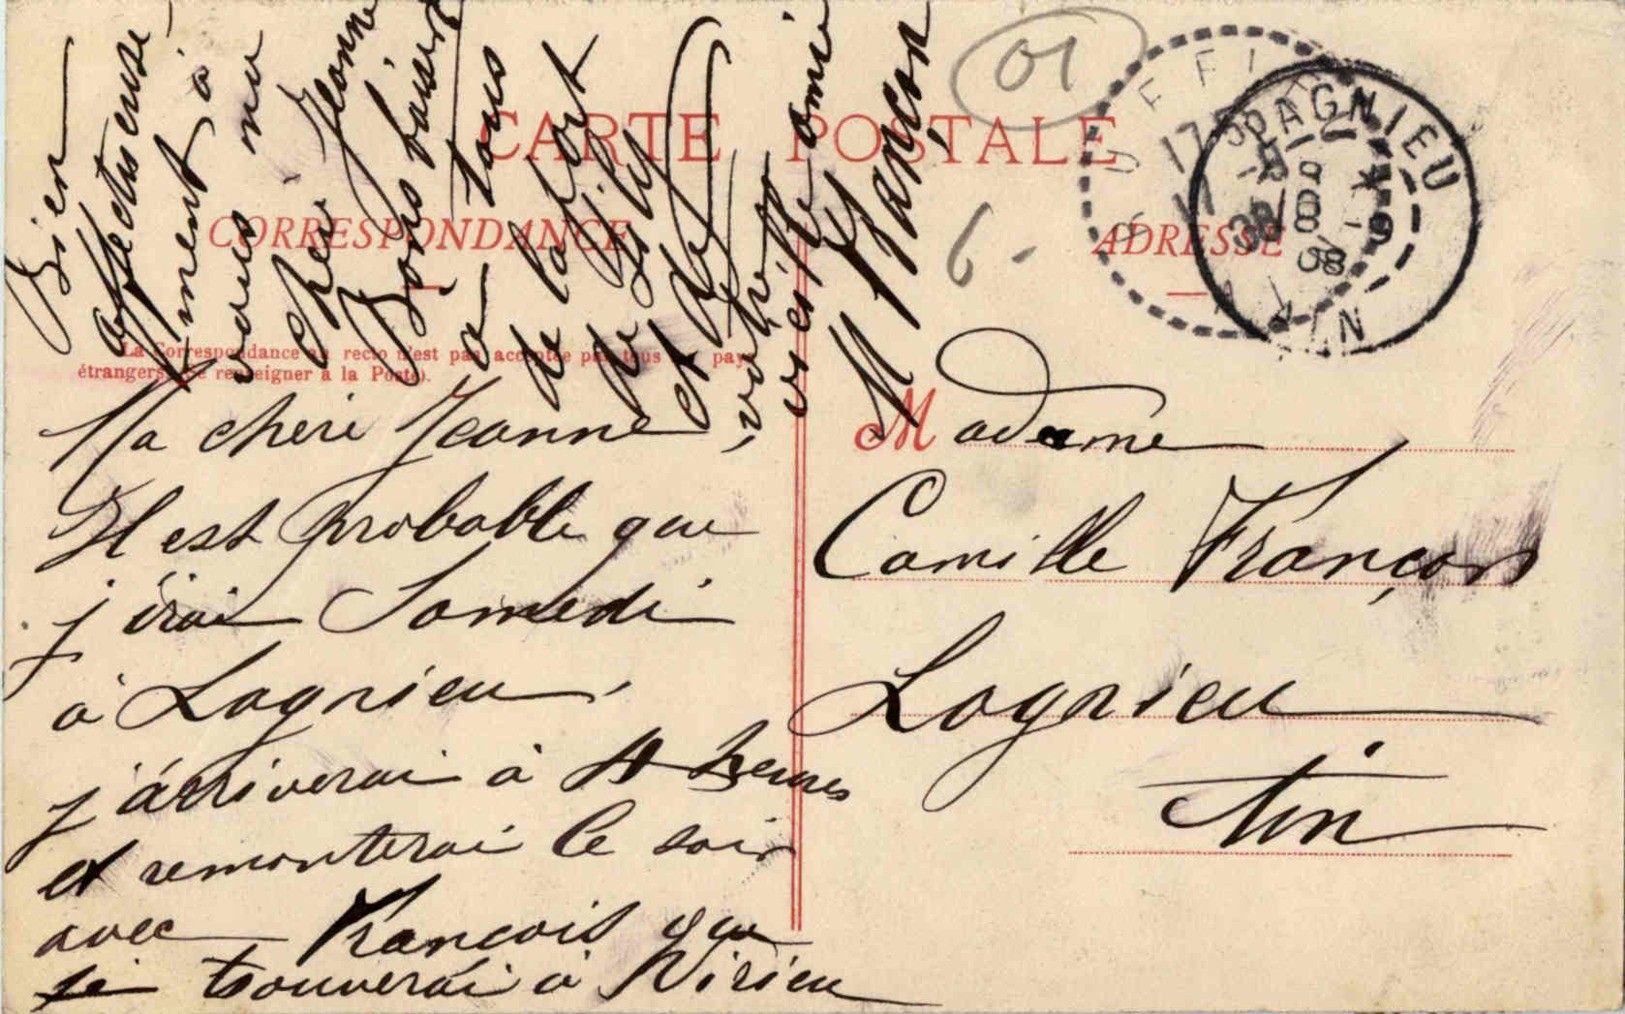 CARTE POSTALE
CORRESPONDANCE
ADRESSE
La Correspondance au recto n'est pas acceptée par tous pays
étrangers (Se renseigner à la Poste).
01
6 -
LAGNIEU
AIN
Ma chere Jeanne,
Il est probable que
j'irai Samedi
à Lagnieu,
j'arriverai à 4 heures
et remonterai le soir
avec François que
je trouverai à Virieu
Bien
affectueuse-
ment à
vous ma
chere Jeanne
Bons baisers
à tous
de la part
de
et de
votre
vieille amie
M Françon
Madame
Camille Françon
Lagnieu
Ain